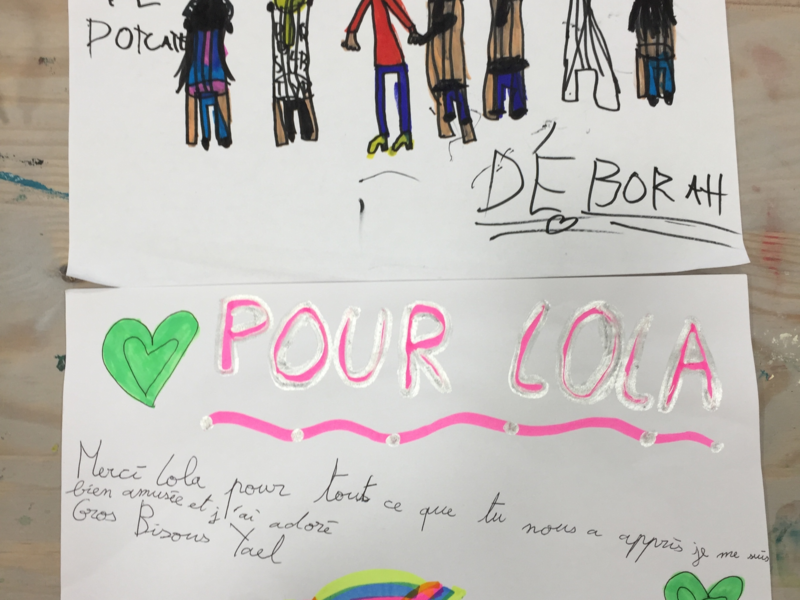 POTCATE
DÉBORAH
POUR LOLA
Merci Lola pour tout ce que tu nous a appris je me suis
bien amusée et j'ai adoré
Gros Bisous Yael